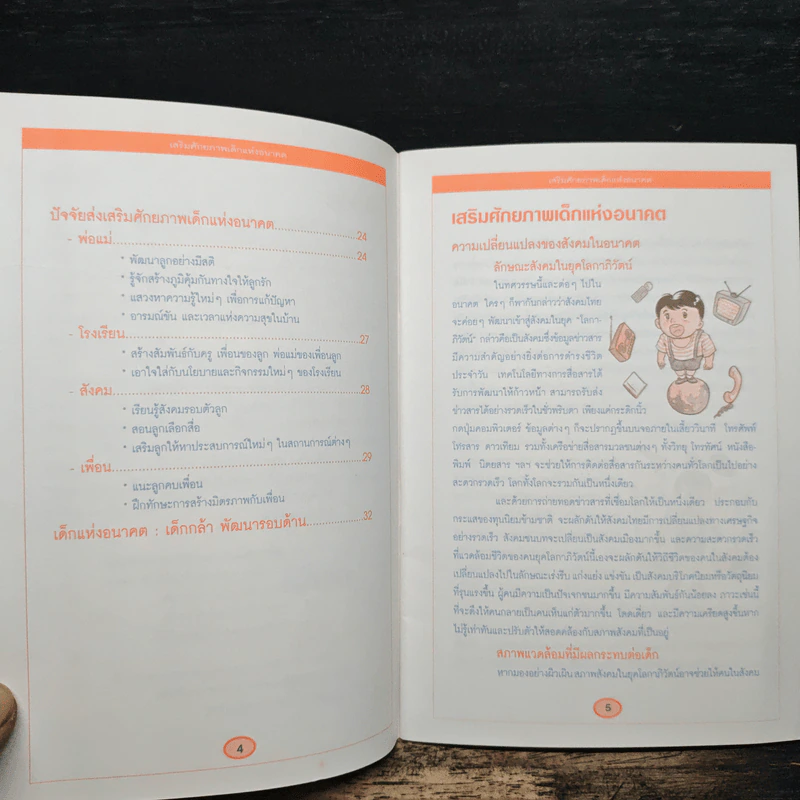 เสริมศักยภาพเด็กแห่งอนาคต
ปัจจัยส่งเสริมศักยภาพเด็กแห่งอนาคต....................24
- พ่อแม่....................24
* พัฒนาลูกอย่างมีสติ
* รู้จักสร้างภูมิคุ้มกันทางใจให้ลูกรัก
* แสวงหาความรู้ใหม่ๆ เพื่อการแก้ปัญหา
* อารมณ์ขัน และเวลาแห่งความสุขในบ้าน
- โรงเรียน....................27
* สร้างสัมพันธ์กับครู เพื่อนของลูก พ่อแม่ของเพื่อนลูก
* เอาใจใส่กับนโยบายและกิจกรรมใหม่ๆ ของโรงเรียน
- สังคม....................28
* เรียนรู้สังคมรอบตัวลูก
* สอนลูกเลือกสื่อ
* เสริมลูกให้หาประสบการณ์ใหม่ๆ ในสถานการณ์ต่างๆ
- เพื่อน....................29
* แนะลูกคบเพื่อน
* ฝึกทักษะการสร้างมิตรภาพกับเพื่อน
เด็กแห่งอนาคต : เด็กกล้า พัฒนารอบด้าน....................32
4
เสริมศักยภาพเด็กแห่งอนาคต
เสริมศักยภาพเด็กแห่งอนาคต
ความเปลี่ยนแปลงของสังคมในอนาคต
ลักษณะสังคมในยุคโลกาภิวัตน์
ในทศวรรษนี้และต่อๆ ไปใน
อนาคต ใครๆ ก็พากันกล่าวว่าสังคมไทย
จะค่อยๆ พัฒนาเข้าสู่สังคมในยุค "โลกา-
ภิวัตน์" กล่าวคือเป็นสังคมซึ่งข้อมูลข่าวสาร
มีความสำคัญอย่างยิ่งต่อการดำรงชีวิต
ประจำวัน เทคโนโลยีทางการสื่อสารได้
รับการพัฒนาให้ก้าวหน้า สามารถรับส่ง
ข่าวสารได้อย่างรวดเร็วในชั่วพริบตา เพียงแค่กระดิกนิ้ว
กดปุ่มคอมพิวเตอร์ ข้อมูลต่างๆ ก็จะปรากฏขึ้นบนจอภายในเสี้ยววินาที โทรศัพท์
โทรสาร ดาวเทียม รวมทั้งเครือข่ายสื่อสารมวลชนต่างๆ ทั้งวิทยุ โทรทัศน์ หนังสือ-
พิมพ์ นิตยสาร ฯลฯ จะช่วยให้การติดต่อสื่อสารกันระหว่างคนทั่วโลกเป็นไปอย่าง
สะดวกรวดเร็ว โลกทั้งโลกจะรวมกันเป็นหนึ่งเดียว
และด้วยการถ่ายทอดข่าวสารที่เชื่อมโลกให้เป็นหนึ่งเดียว ประกอบกับ
กระแสของทุนนิยมข้ามชาติ จะผลักดันให้สังคมไทยมีการเปลี่ยนแปลงทางเศรษฐกิจ
อย่างรวดเร็ว สังคมชนบทจะเปลี่ยนเป็นสังคมเมืองมากขึ้น และความสะดวกรวดเร็ว
ที่แวดล้อมชีวิตของคนยุคโลกาภิวัตน์นี้เองจะผลักดันให้วิถีชีวิตของคนในสังคมต้อง
เปลี่ยนแปลงไปในลักษณะเร่งรีบ แก่งแย่ง แข่งขัน เป็นสังคมบริโภคนิยมหรือวัตถุนิยม
ที่รุนแรงขึ้น ผู้คนมีความเป็นปัจเจกชนมากขึ้น มีความสัมพันธ์กันน้อยลง ภาวะเช่นนี้
ที่จะดึงให้คนกลายเป็นคนเห็นแก่ตัวมากขึ้น โดดเดี่ยว และมีความเครียดสูงขึ้นหาก
ไม่รู้เท่าทันและปรับตัวให้สอดคล้องกับสภาพสังคมที่เป็นอยู่
สภาพแวดล้อมที่มีผลกระทบต่อเด็ก
หากมองอย่างผิวเผิน สภาพสังคมในยุคโลกาภิวัตน์อาจช่วยให้คนในสังคม
5